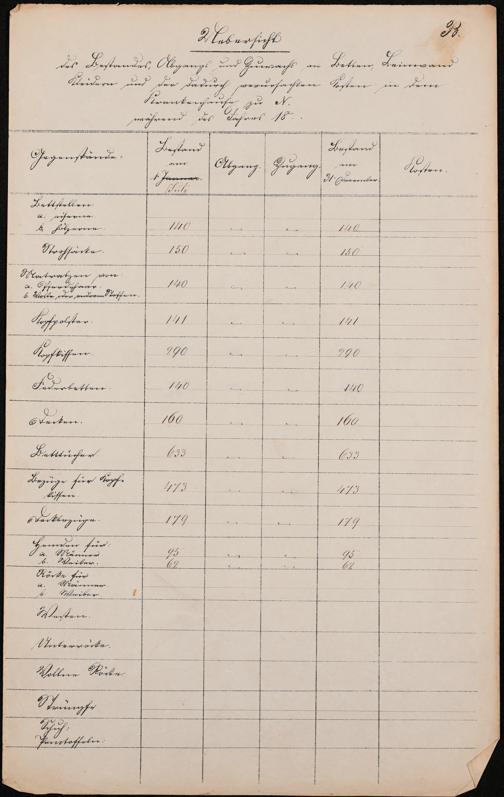 B.
Uebersicht
des Bestandes, Abgangs und Zuwachs an Betten, Leinwand
Kleidern und der dadurch verursachten Kosten in dem
Krankenhause zu N.
während des Jahres 18 .
Gegenstände. Bestand am 1 Januar Juli Abgang. Zugang. Bestand am 31 December. Kosten.
Bettstellen
a. eiserne
b. hölzerne 140 " " 140
Strohsäcke 150 " " 150
Matratzen von
a. Pferdehaar 140 " " 140
b Wolle oder anderen Stoffen
Kopfpolster 141 " " 141
Kopfkissen 290 " " 290
Federbetten 140 " " 140
Decken. 160 " " 160
Betttücher 633 " " 633
Bezüge für Kopf-
kissen 473 " " 473
Deckbezüge 179 " " 179
Hemden für
a. Männer 95 " " 95
b. Weiber 62 " " 62
Röcke für
a. Männer
b Weiber
Westen.
Unterröcke.
Wollene Röcke
Strümpfe
Schuh,
Pantoffeln.